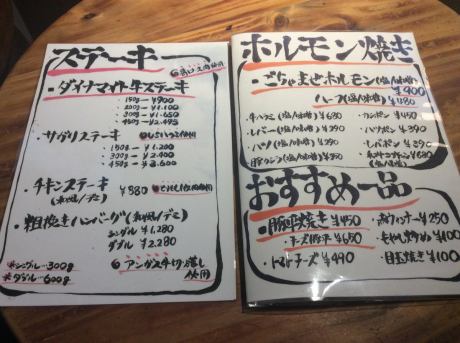 ステーキ
・ダイナマイト牛ステーキ
150g ー ¥900
200g ー ¥1.100
300g ー ¥1.650
450g ー ¥2.475
サガリステーキ
150g ー ¥1.200
300g ー ¥2.400
450g ー ¥3.600
チキンステーキ ¥880
(和風/デミ)
粗挽きハンバーグ(和風/デミ)
シングル ¥1,280
ダブル ¥2.280
＊シングル…300g
＊ダブル…600g
アンガス牛切り落し
使用
ホルモン焼き
・ごちゃまぜホルモン(塩/味噌)
¥900
ハーフ(塩/味噌) ¥480
・牛ハラミ(塩/味噌) ¥680
・レバー(塩/味噌) ¥390
・カンポン ¥450
・ハツポン ¥390
・レバポン ¥390
おすすめ一品
・豚平焼き ¥450
・チーズ豚平 ¥650
・トマトチーズ ¥490
・赤ウィンナー ¥250
・もやし炒め ¥100
・目玉焼き ¥100